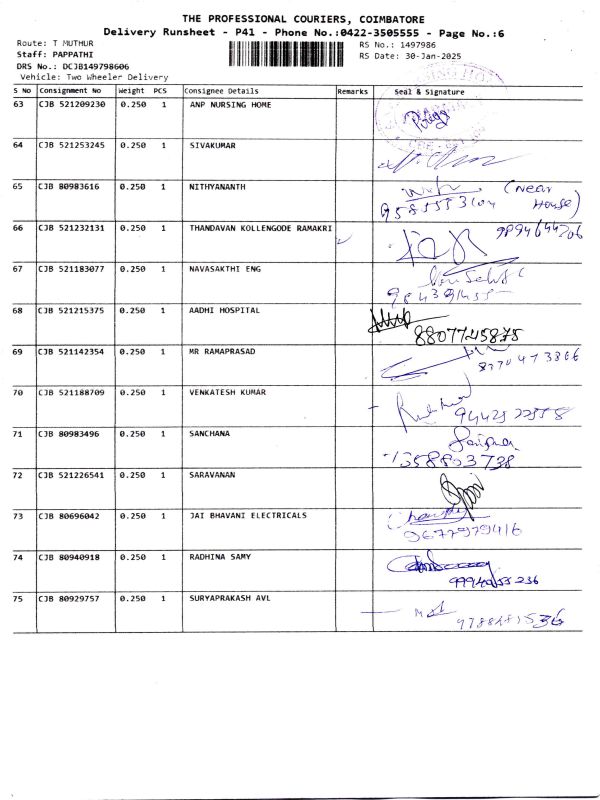 THE PROFESSIONAL COURIERS, COIMBATORE
Delivery Runsheet - P41 - Phone No.:0422-3505555 - Page No.:6
Route: T MUTHUR RS No.: 1497986
Staff: PAPPATHI RS Date: 30-Jan-2025
DRS No.: DCJB149798606
Vehicle: Two Wheeler Delivery
S No Consignment No Weight PCS Consignee Details Remarks Seal & Signature
63 CJB 521209230 0.250 1 ANP NURSING HOME
64 CJB 521253245 0.250 1 SIVAKUMAR
65 CJB 80983616 0.250 1 NITHYANANTH (Near
House)
66 CJB 521232131 0.250 1 THANDAVAN KOLLENGODE RAMAKRI
67 CJB 521183077 0.250 1 NAVASAKTHI ENG
68 CJB 521215375 0.250 1 AADHI HOSPITAL
8807745875
69 CJB 521142354 0.250 1 MR RAMAPRASAD
70 CJB 521188709 0.250 1 VENKATESH KUMAR
71 CJB 80983496 0.250 1 SANCHANA
72 CJB 521226541 0.250 1 SARAVANAN
73 CJB 80696042 0.250 1 JAI BHAVANI ELECTRICALS
9677979416
74 CJB 80940918 0.250 1 RADHINA SAMY
75 CJB 80929757 0.250 1 SURYAPRAKASH AVL